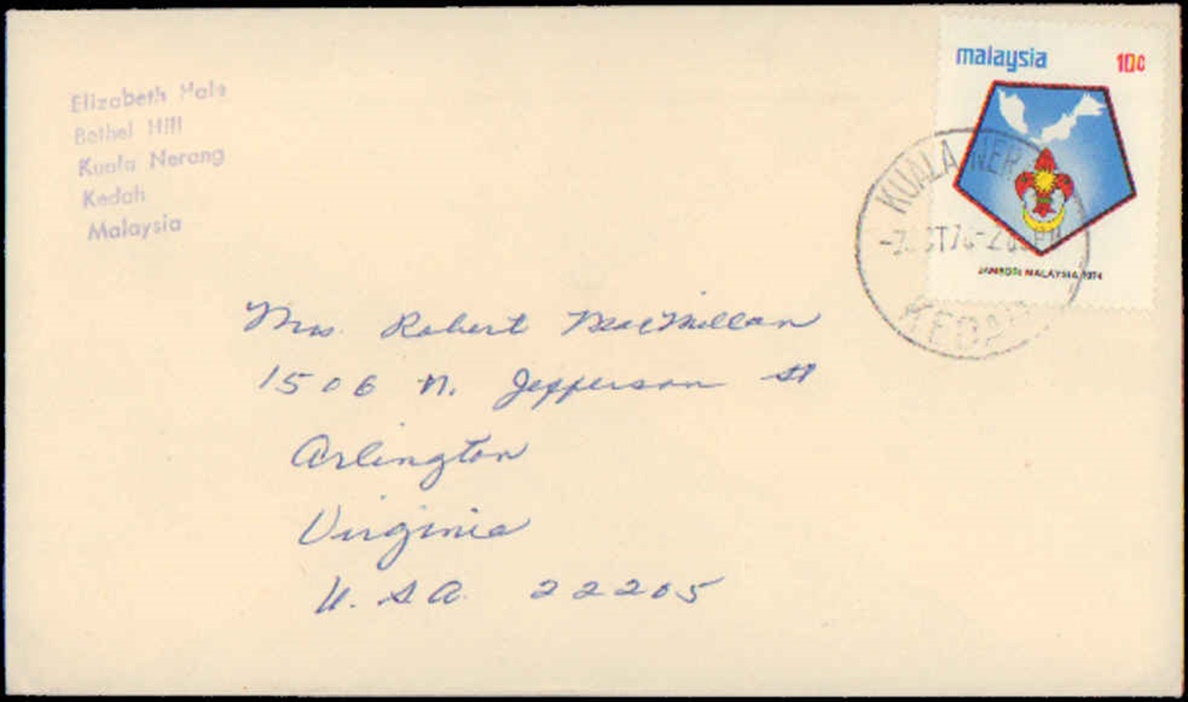 Elizabeth Hale
Bethel Hill
Kuala Nerang
Kedah
Malaysia
malaysia 10c
JAMBORI MALAYSIA 1974
KUALA NER
KEDA
Mrs. Robert MacMillan
1506 N. Jefferson St
Arlington
Virginia
U.S.A. 22205